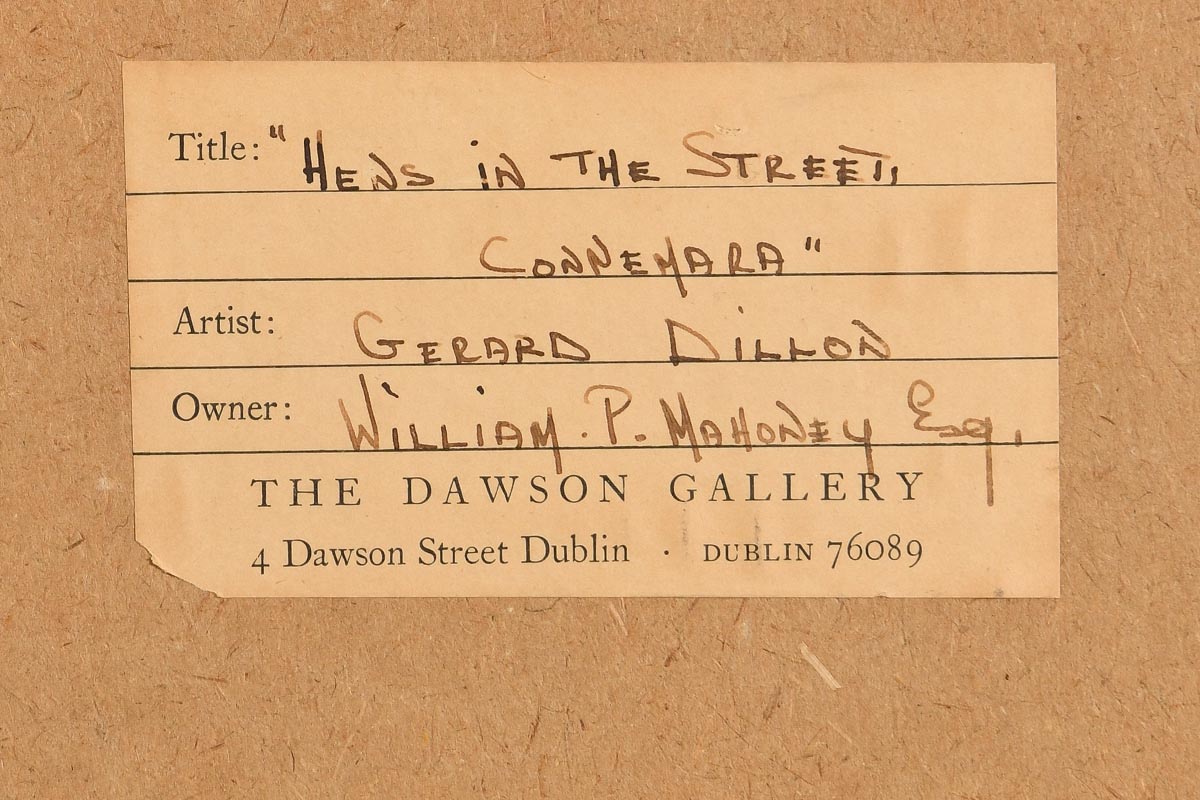 Title: "HENS IN THE STREET,
CONNEMARA"
Artist: GERARD DILLON
Owner: WILLIAM. P. MAHONEY Esq.
THE DAWSON GALLERY
4 Dawson Street Dublin · DUBLIN 76089